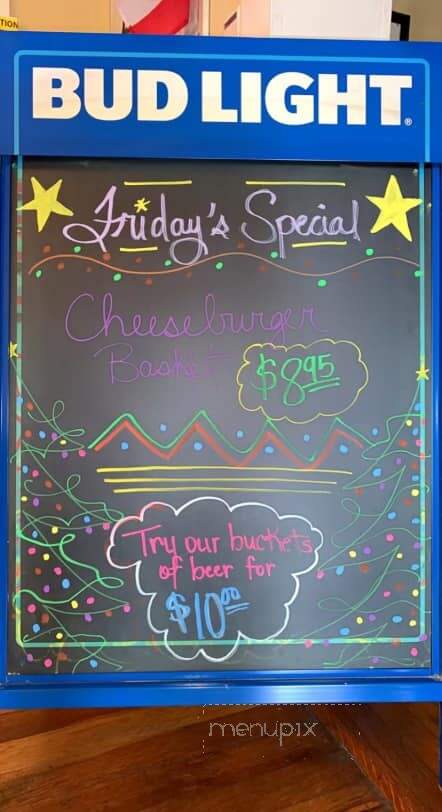 TION
BUD LIGHT®
Friday's Special
Cheeseburger
Basket $8.95
Try our buckets
of beer for
$10.00
menupix